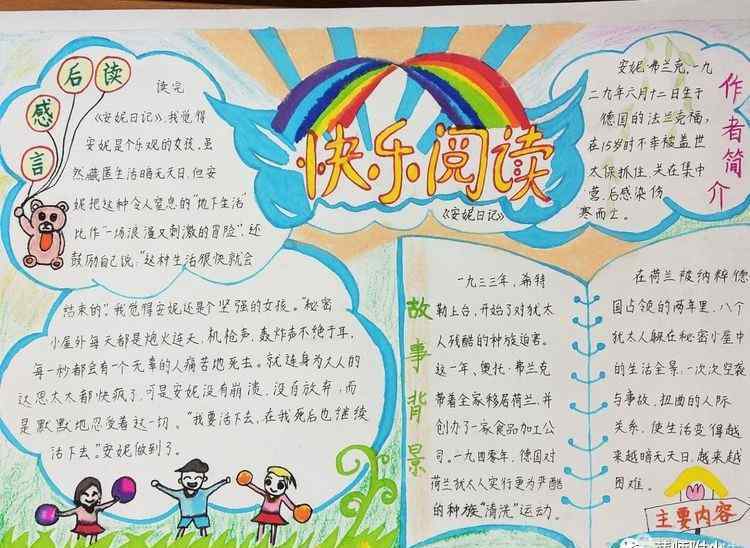 快乐阅读
《安妮日记》
读后感言
读完
《安妮日记》，我觉得
安妮是个乐观的女孩。虽
然藏匿生活暗无天日，但安
妮把这种令人窒息的“地下生活”
比作“一场浪漫又刺激的冒险”，还
鼓励自己说：“这种生活很快就会
结束的”。我觉得安妮还是个坚强的女孩。“秘密
小屋外每天都是炮火连天，机枪声、轰炸声不绝于耳，
每一秒都会有一个无辜的人痛苦地死去。就连身为大人的
达恩太太都快疯了，可是安妮没有崩溃，没有放弃，而
是默默地忍受着这一切。“我要活下去，在我死后也继续
活下去。”安妮做到了。
作者简介
安妮·弗兰克，一九
二九年六月十二日生于
德国的法兰克福，
在15岁时不幸被盖世
太保抓住，关在集中
营，后感染伤
寒而亡。
故事背景
一九三三年，希特
勒上台，开始了对犹太
人残酷的种族迫害。
这一年，奥托·弗兰克
带着全家移居荷兰，并
创办了一家食品加工公
司。一九四零年，德国对
荷兰犹太人实行更为严酷
的种族“清洗”运动。
在荷兰被纳粹德
国占领的两年里，八个
犹太人躲在秘密小屋中
的生活全景，一次次空袭
与事故，扭曲的人际
关系，使生活变得越
来越暗无天日，越来越
困难。
主要内容